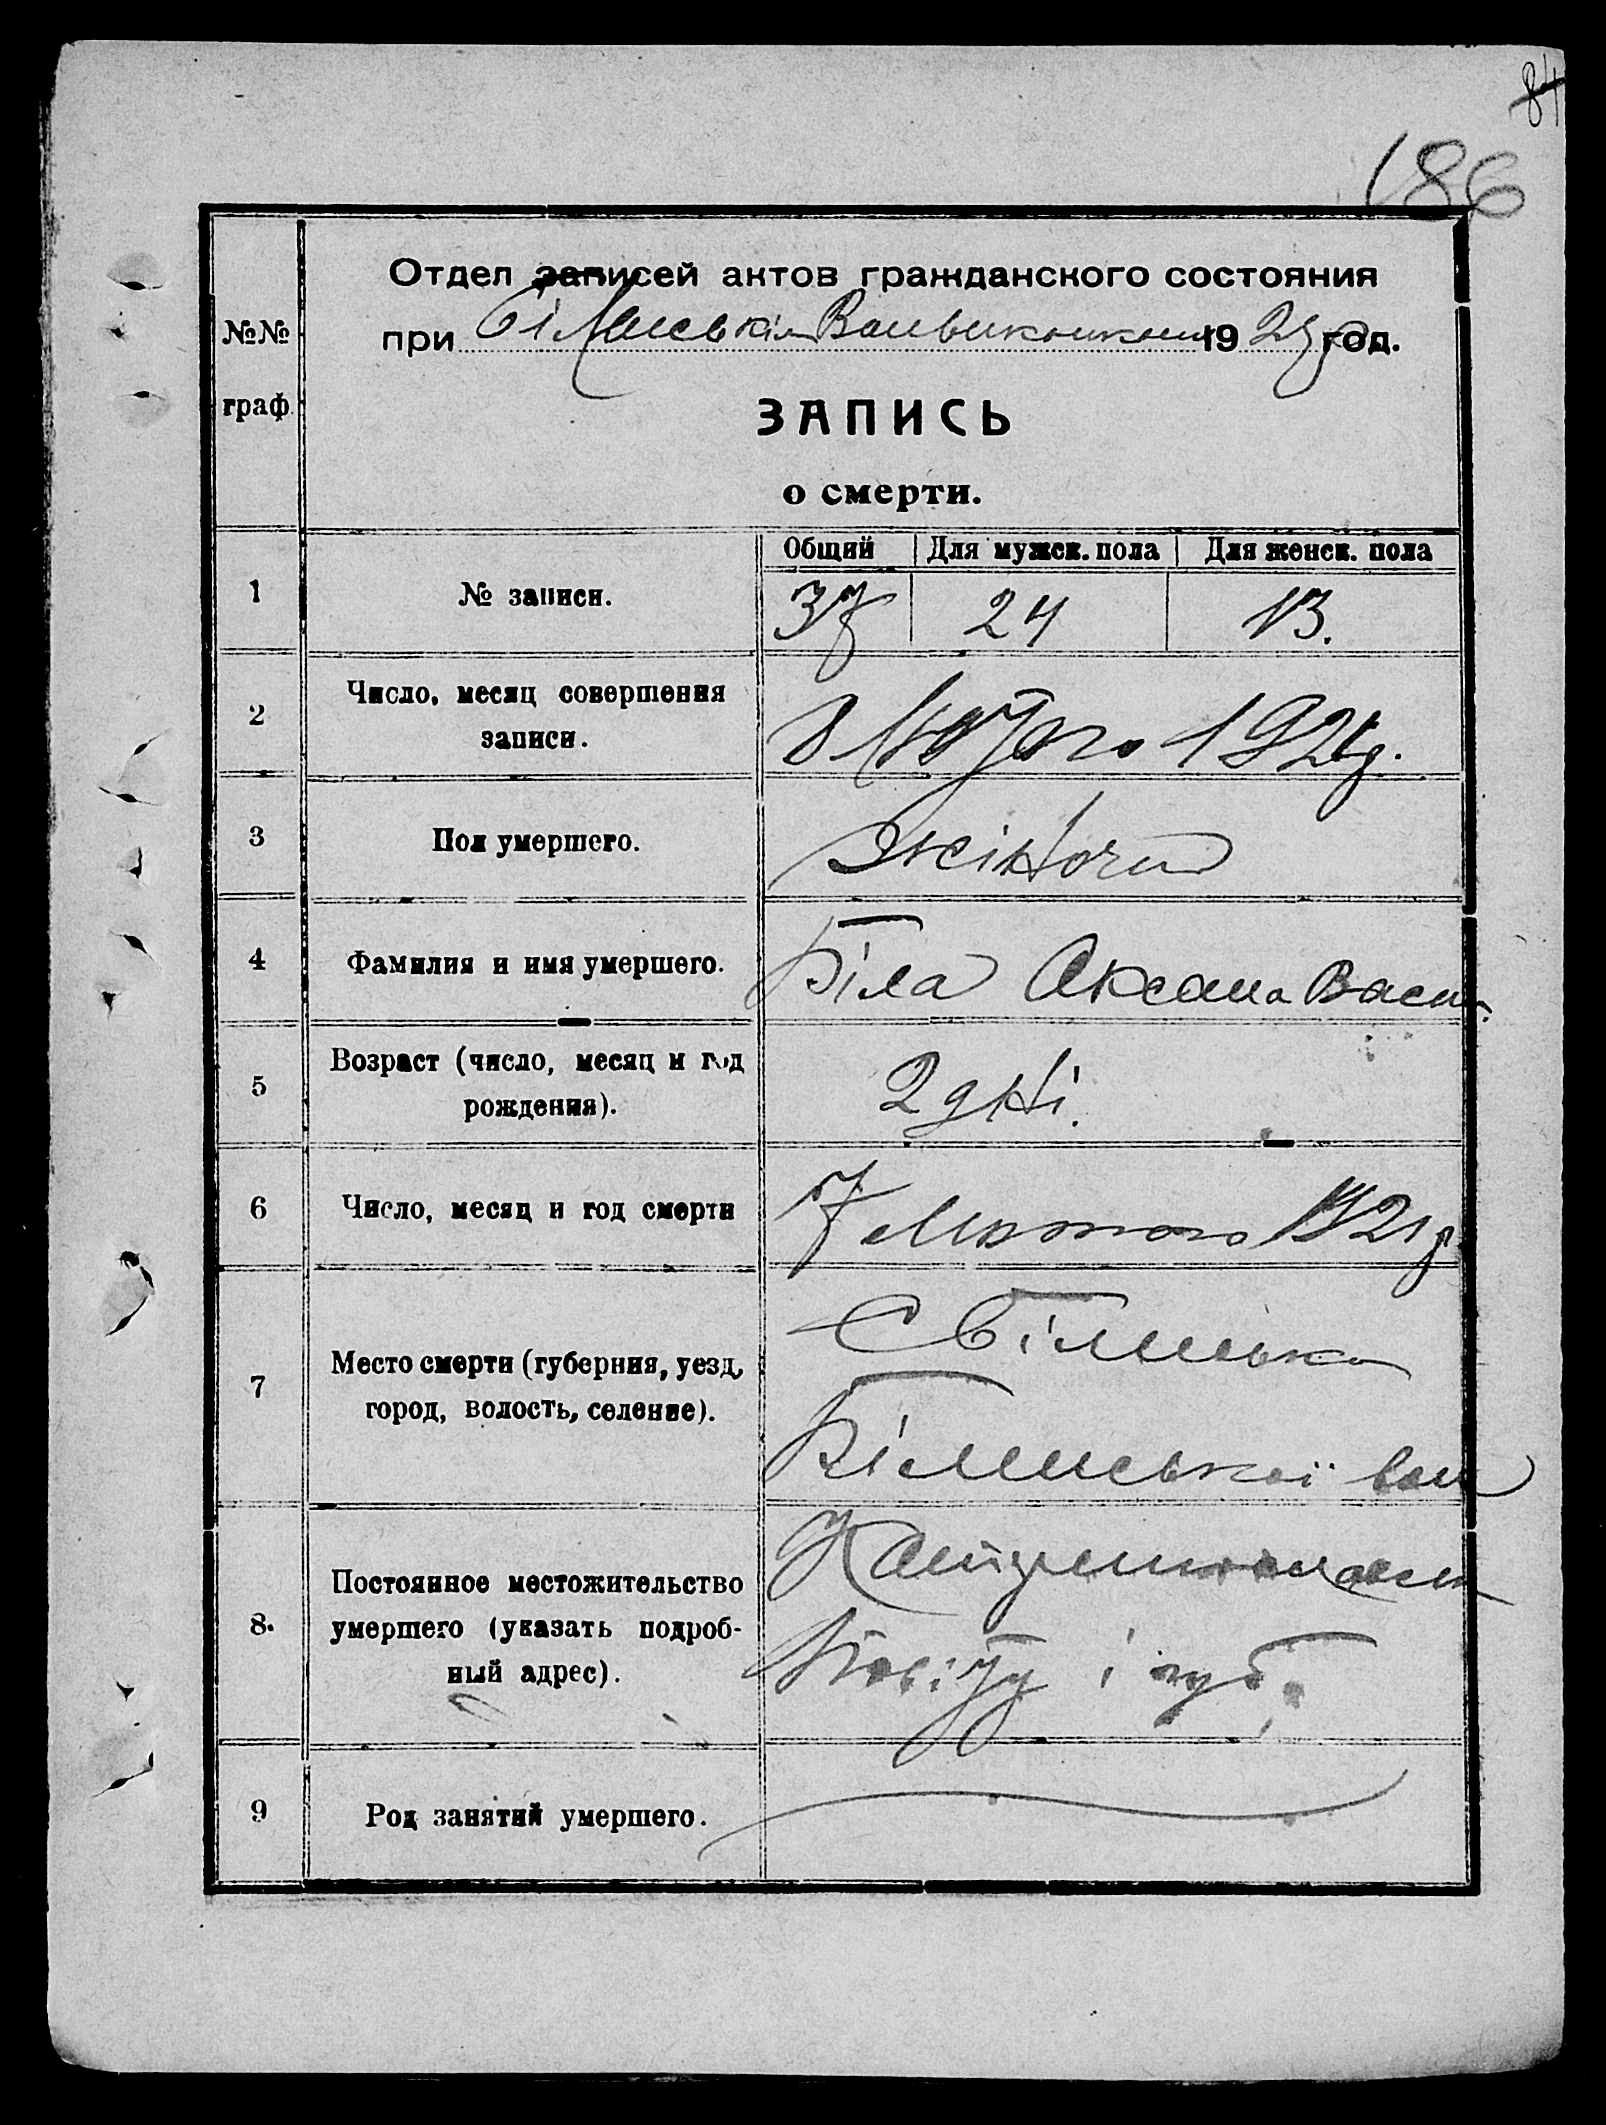 84
186
Отдел записей актов гражданского состояния
при Більській Волвиконкомі 192 год.
№№
граф.
ЗАПИСЬ
о смерти.
Общий Для мужск. пола Для женск. пола
1 № записи. 37 24 13.
2 Число, месяц совершения
записи.
8 Лютого 192 р.
3 Пол умершего. Жіноча
4 Фамилия и имя умершего. Біла Оксана Васил.
5 Возраст (число, месяц и год
рождения).
2 дні.
6 Число, месяц и год смерти 7 Лютого 192 р
7 Место смерти (губерния, уезд,
город, волость, селение).
С
вол
8. Постоянное местожительство
умершего (указать подроб-
ный адрес).
Повіту і губ.
9 Род занятий умершего.